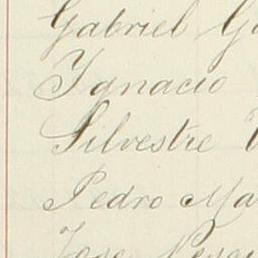 Gabriel
Ignacio
Silvestre
Pedro Ma
Jose